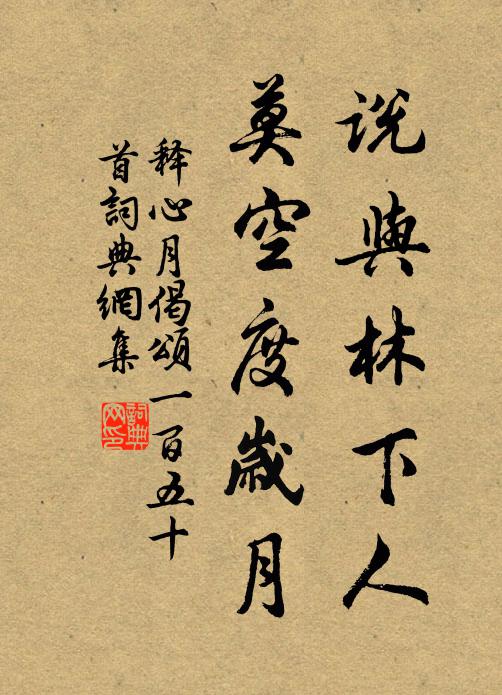 說與林下人
莫空度歲月
释心月偈頌一百五十
首詞典網集
詞典
网印